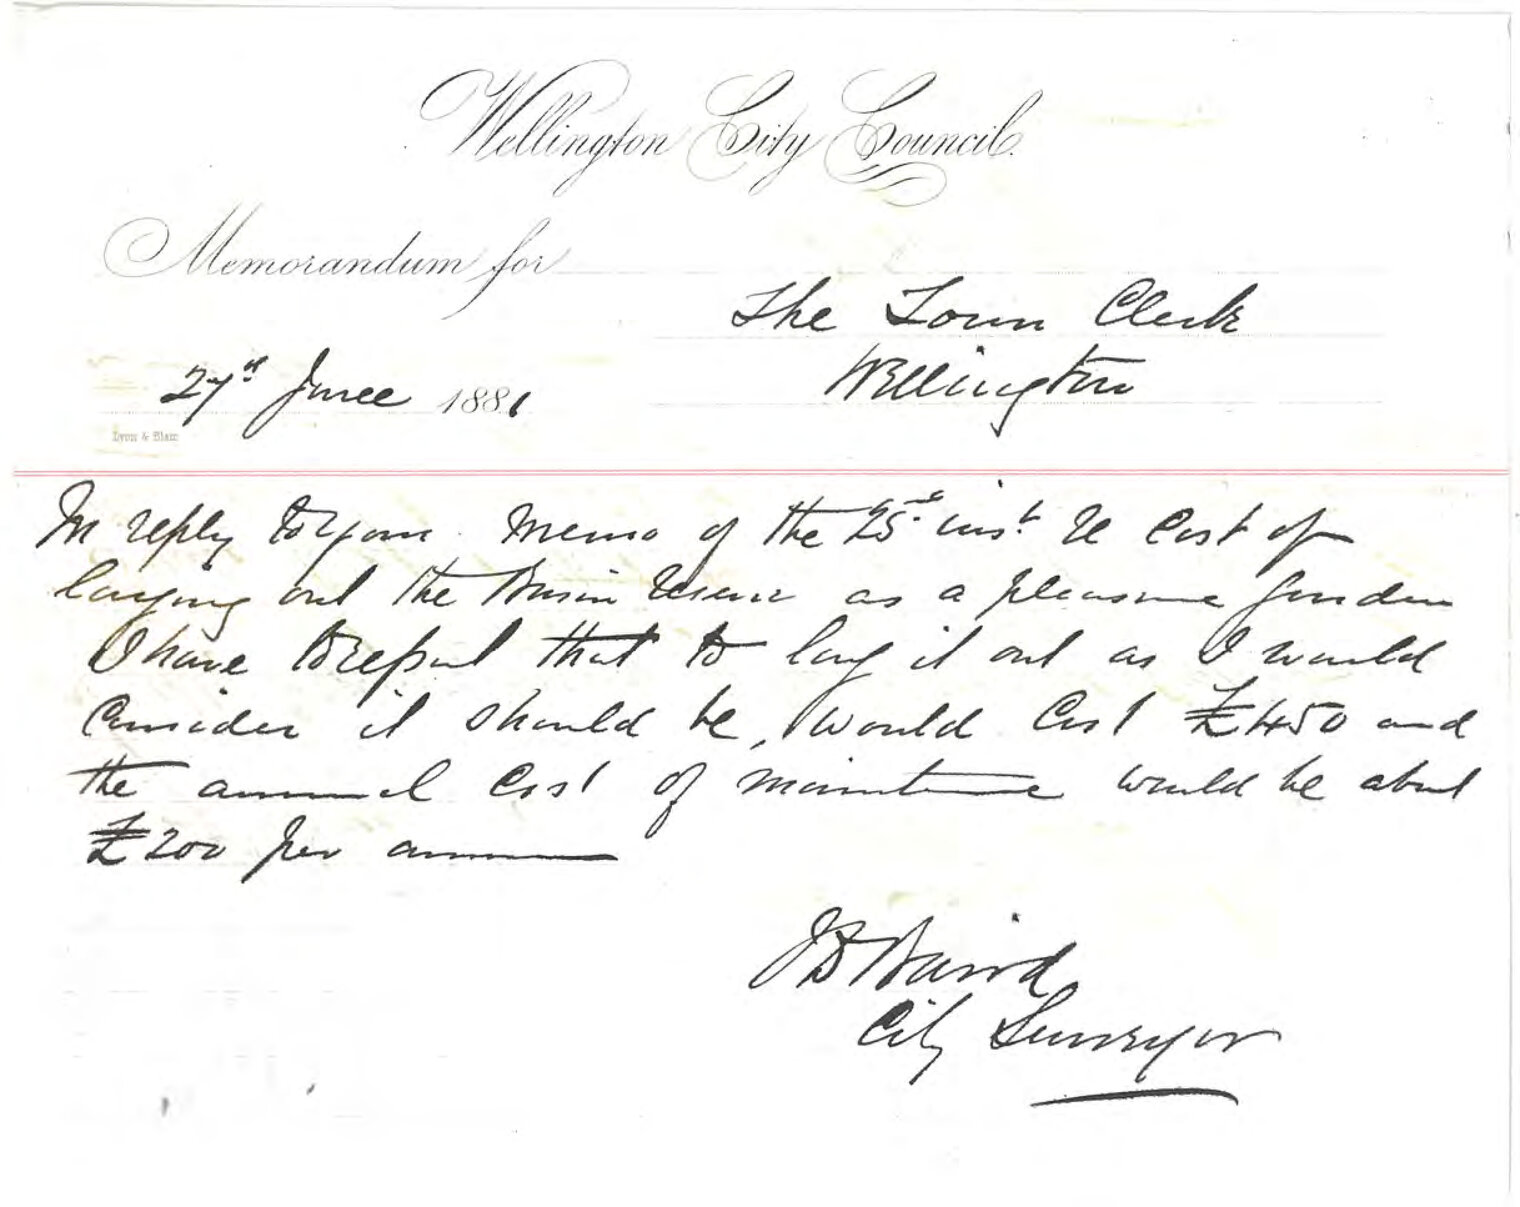 Wellington City Council.
Memorandum for
The Town Clerk
Wellington
27th June 1881
Lyon & Blair
In reply to your Memo of the 25th inst. re Cost of
laying out the Basin Reserve as a pleasure garden
I have to report that to lay it out as I would
Consider it should be, would Cost £450 and
the annual Cost of maintenance would be about
£200 per annum
J D Baird
City Surveyor